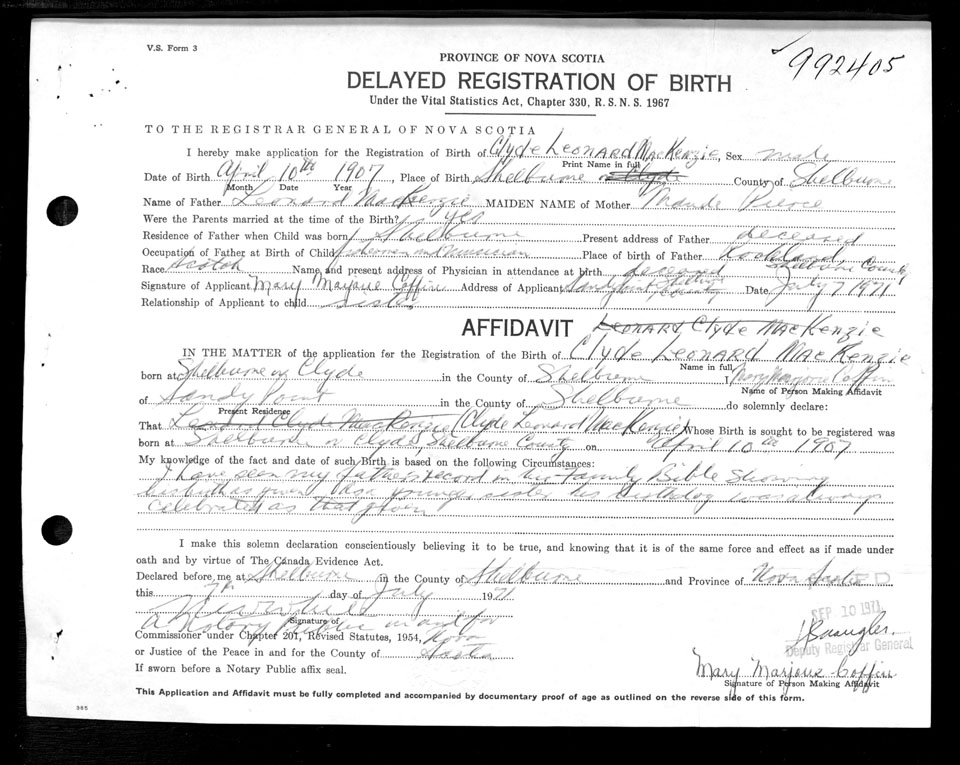 V.S. Form 3
992405
PROVINCE OF NOVA SCOTIA
DELAYED REGISTRATION OF BIRTH
Under the Vital Statistics Act, Chapter 330, R.S.N.S. 1967
TO THE REGISTRAR GENERAL OF NOVA SCOTIA
I hereby make application for the Registration of Birth of Clyde Leonard MacKenzie, Sex male
Print Name in full
Date of Birth April 10th 1907, Place of Birth Shelburne or Clyde County of Shelburne
Month Date Year
Name of Father Leonard MacKenzie MAIDEN NAME of Mother Maude Pierce
Were the Parents married at the time of the Birth? yes
Residence of Father when Child was born Shelburne Present address of Father deceased
Occupation of Father at Birth of Child fisherman and musician Place of birth of Father Rockland Shelburne County
Race Scotch Name and present address of Physician in attendance at birth deceased
Signature of Applicant Mary Marjorie Coffin Address of Applicant Sandy Point Shelburne County Date July 7 1971
Relationship of Applicant to child Sister
AFFIDAVIT Leonard Clyde MacKenzie
IN THE MATTER of the application for the Registration of the Birth of Clyde Leonard MacKenzie
Name in full
born at Shelburne or Clyde in the County of Shelburne I Mary Marjorie Coffin
Name of Person Making Affidavit
of Sandy Point in the County of Shelburne do solemnly declare:
Present Residence
That Leonard Clyde MacKenzie (Clyde Leonard MacKenzie) Whose Birth is sought to be registered was
born at Shelburne or Clyde, Shelburne County on April 10th 1907
My knowledge of the fact and date of such Birth is based on the following Circumstances:
I have seen my father's record in his family Bible showing
his birth as given. As a younger sister his birthday was always
celebrated as that given
I make this solemn declaration conscientiously believing it to be true, and knowing that it is of the same force and effect as if made under
oath and by virtue of The Canada Evidence Act.
Declared before me at Shelburne in the County of Shelburne and Province of Nova Scotia
this 7th day of July 1971
SEP 10 1971
Signature of
A Notary Public in and for
Commissioner under Chapter 201, Revised Statutes, 1954, Nova
or Justice of the Peace in and for the County of Scotia
Deputy Registrar General
If sworn before a Notary Public affix seal.
Mary Marjorie Coffin
Signature of Person Making Affidavit
This Application and Affidavit must be fully completed and accompanied by documentary proof of age as outlined on the reverse side of this form.
365